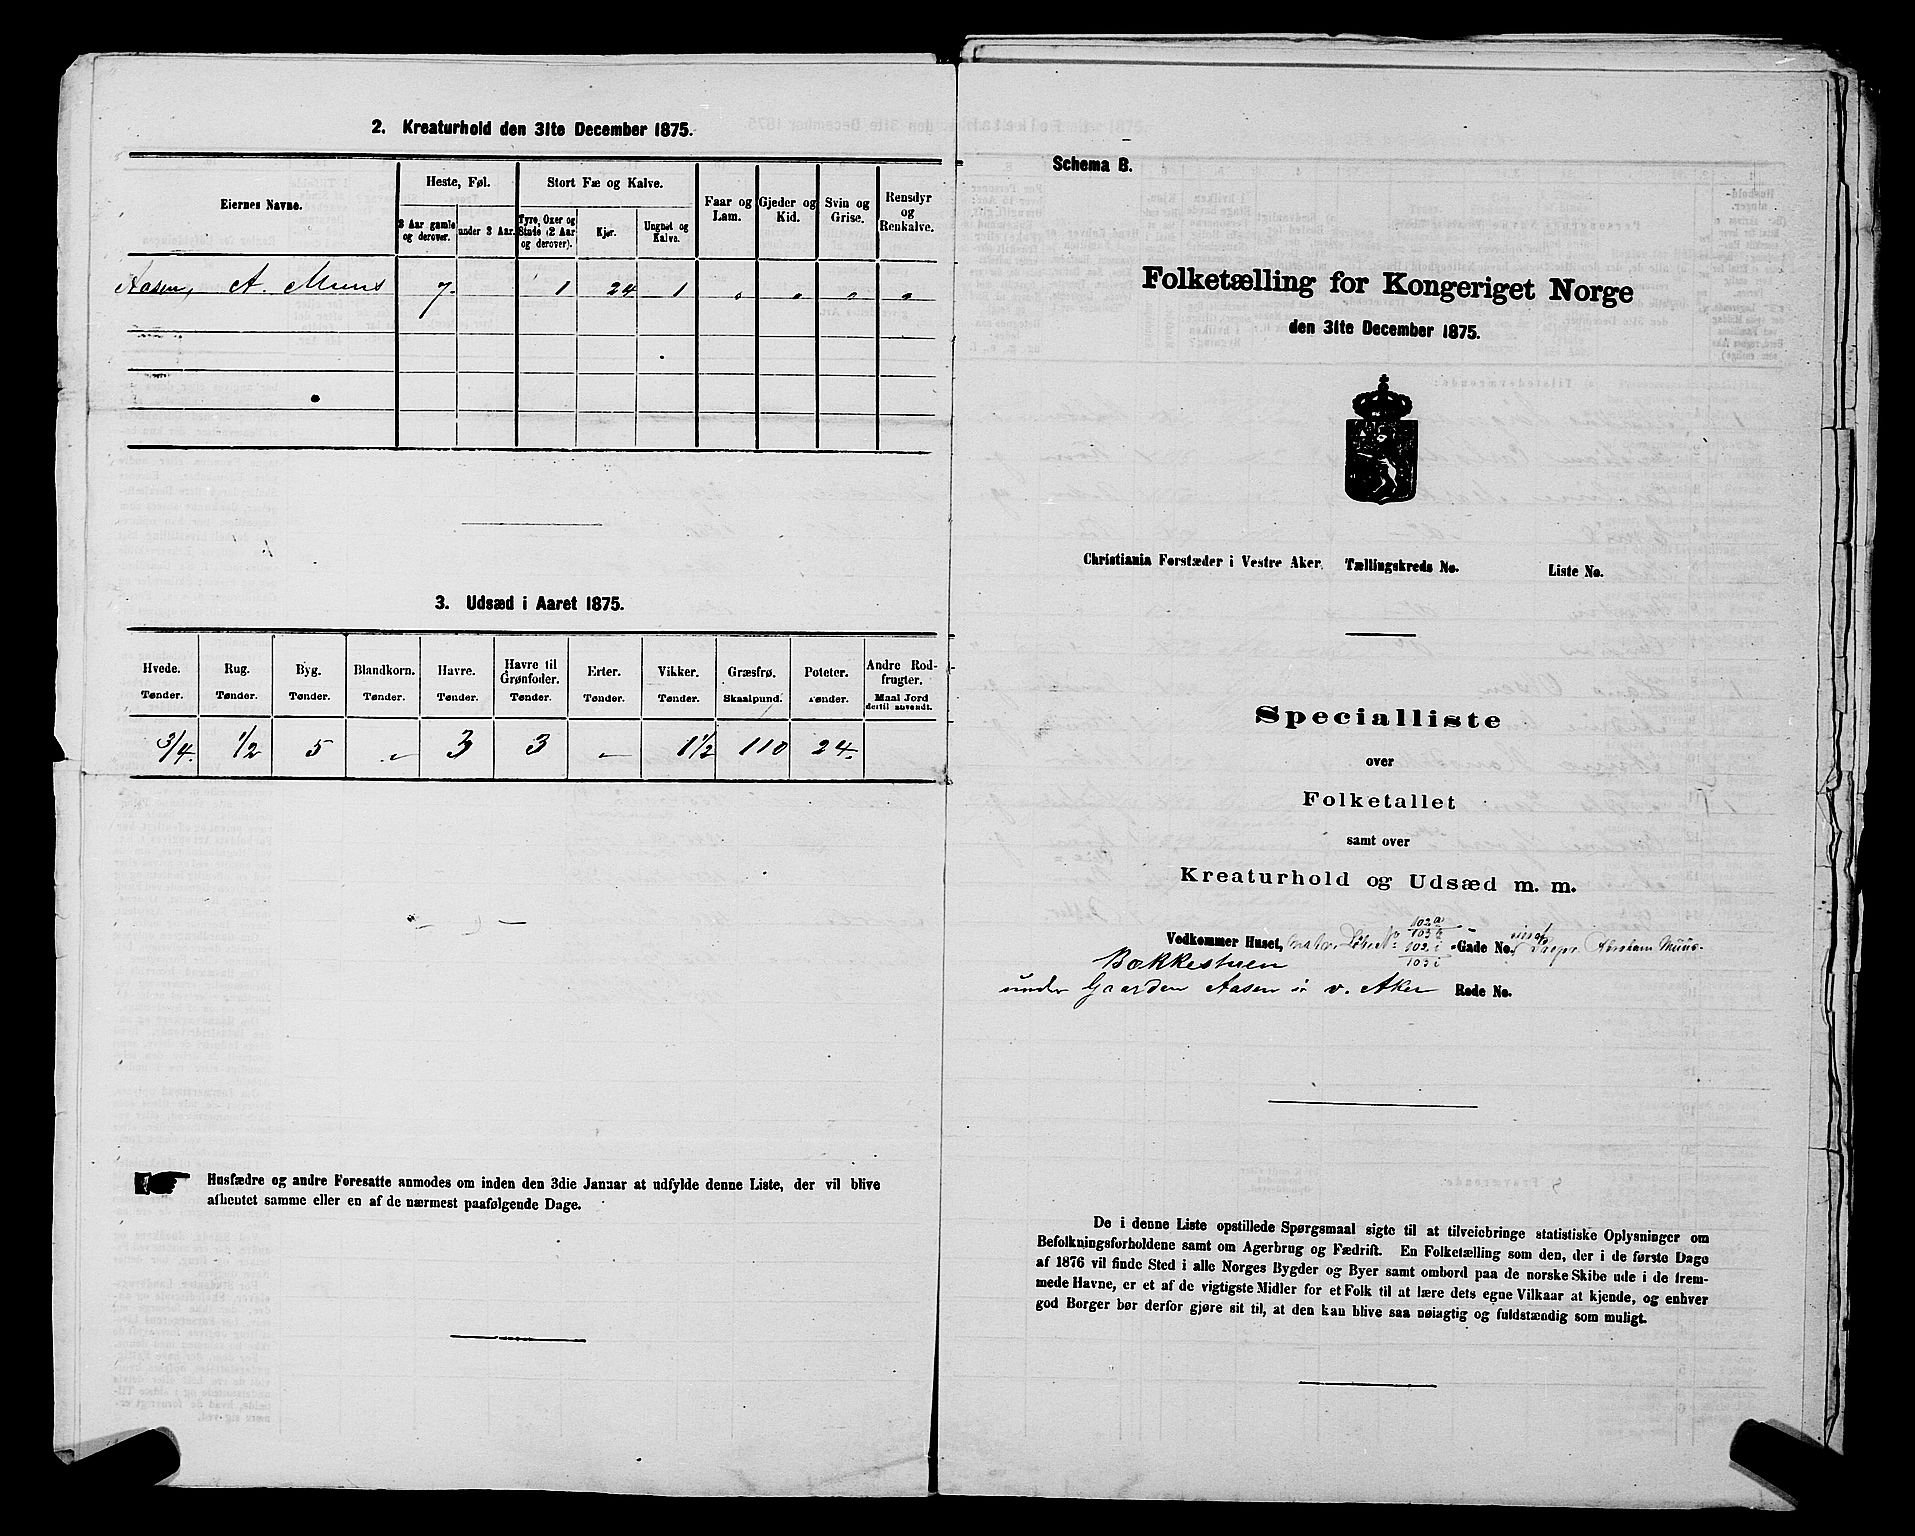 2. Kreaturhold den 31te December 1875.
Eiernes Navne.
Heste, Føl.
Stort Fæ og Kalve.
Faar og Lam.
Gjeder og Kid.
Svin og Grise.
Rensdyr og Renkalve.
3 Aar gamle og derover.
under 3 Aar.
Tyre, Oxer og Stude (2 Aar og derover).
Kjør.
Ungnøt og Kalve.
Aasen, A. Muus 7. 1 24 1 " " " "
3. Udsæd i Aaret 1875.
Hvede. Rug. Byg. Blandkorn. Havre. Havre til Grønfoder. Erter. Vikker. Græsfrø. Poteter. Andre Rodfrugter.
Tønder. Tønder. Tønder. Tønder. Tønder. Tønder. Tønder. Tønder. Skaalpund. Tønder. Maal Jord dertil anvendt.
3/4. 1/2 5 " 3 3 " 1 1/2 110 24.
Husfædre og andre Foresatte anmodes om inden den 3die Januar at udfylde denne Liste, der vil blive
afhentet samme eller en af de nærmest paafølgende Dage.
Schema B.
Folketælling for Kongeriget Norge
den 31te December 1875.
Christiania Forstæder i Vestre Aker. Tællingskreds No. Liste No.
Specialliste
over
Folketallet
samt over
Kreaturhold og Udsæd m. m.
102 a
103 a
Vedkommer Huset, Matr. Løbe No 102 i Gade No. Abraham Muus
103 i
Bækkestuen
under Gaarden Aasen i v. Aker Rode No.
De i denne Liste opstillede Spørgsmaal sigte til at tilveiebringe statistiske Oplysninger om
Befolkningsforholdene samt om Agerbrug og Fædrift. En Folketælling som den, der i de første Dage
af 1876 vil finde Sted i alle Norges Bygder og Byer samt ombord paa de norske Skibe ude i de frem-
mede Havne, er et af de vigtigste Midler for et Folk til at lære dets egne Vilkaar at kjende, og enhver
god Borger bør derfor gjøre sit til, at den kan blive saa nøiagtig og fuldstændig som muligt.